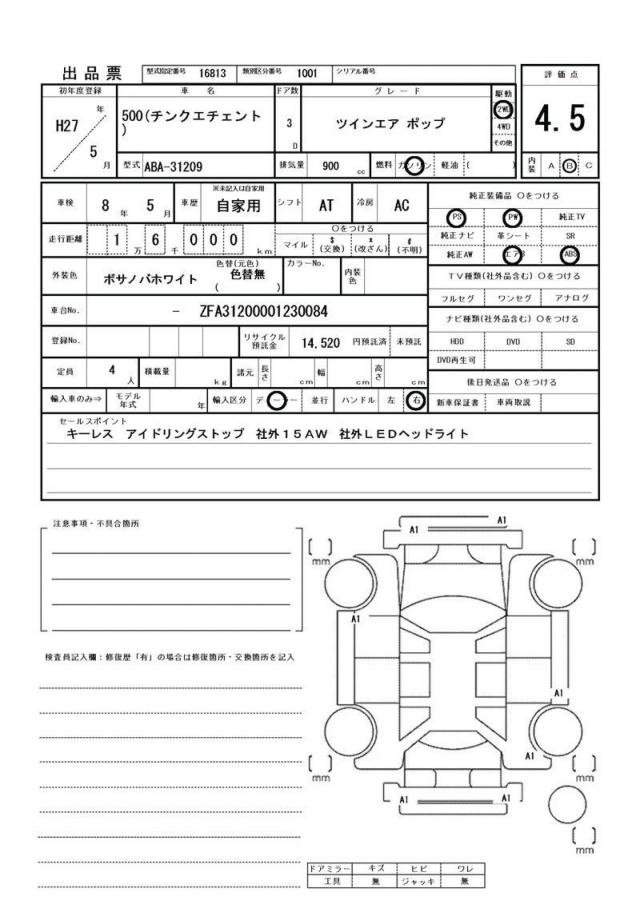 出品票 型式指定番号 16813 類別区分番号 1001 シリアル番号
評価点
4.5
初年度登録 車名 ドア数 グレード 駆動
H27 年 5 月
500(チンクエチェント
)
3 D
ツインエア ポップ
2WD
4WD
その他
型式 ABA-31209 排気量 900 cc 燃料 ガソリン 軽油 ( ) 内装 A B C
車検 8 年 5 月 車歴 ※未記入は自家用 自家用 シフト AT 冷房 AC
走行距離 1 万 6 千 0 0 0 km
○をつける
マイル $ (交換) x (改ざん) # (不明)
外装色 ボサノバホワイト 色替(元色) 色替無 ( ) カラーNo. 内装色
車台No. - ZFA31200001230084
登録No. リサイクル預託金 14,520 円預託済 未預託
定員 4 人 積載量 kg 諸元 長さ cm 幅 cm 高さ cm
輸入車のみ⇒ モデル年式 年 輸入区分 ディーラー 並行 ハンドル 左 右
純正装備品 ○をつける
PS PW 純正TV
純正ナビ 革シート SR
純正AW エアB ABS
TV種類(社外品含む) ○をつける
フルセグ ワンセグ アナログ
ナビ種類(社外品含む) ○をつける
HDD DVD SD
DVD再生可
後日発送品 ○をつける
新車保証書 車両取説
セールスポイント
キーレス アイドリングストップ 社外15AW 社外LEDヘッドライト
注意事項・不具合箇所
検査員記入欄:修復歴「有」の場合は修復箇所・交換箇所を記入
A1
A1
[ ] mm
[ ] mm
A1
A1
A1
A1
[ ] mm
[ ] mm
A1
A1
[ ] mm
ドアミラー キズ ヒビ ワレ
工具 無 ジャッキ 無